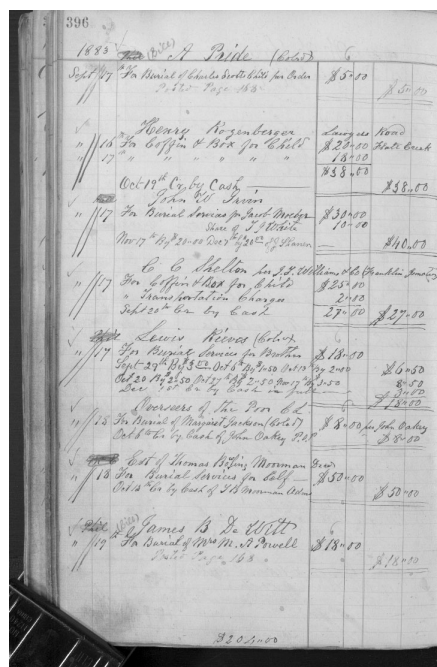 396
1883 (Bill) A Pride (Cold)
Sept 17 For Burial of Charles Scotts Child per Order $5"00
Posted Page 168 $5"00
Henry Rozenberger Lawyers Road
" 16 For Coffin & Box for Child $20"00 Flat Creek
" 17 " " " " " " 18"00
$38"00
Oct 19th Cr by Cash $38"00
John W Irvin
" 17 For Burial Services for Jacob $30"00
Share of T J White 10"00
Nov 17th By $20"00 Dec 7th by $20"00 $40"00
C C Shelton per J. J. Williams & Co (Franklin
" 17 For Coffin & Box for Child $25"00
" Transportation Charges 2"00
Sept 20th Cr by Cash 27"00 $27"00
Lewis Reeves (Cold)
" 17 For Burial Services for Brother $18"00
Sept 29th By $3"00 Oct 6th By $1"50 Oct 13th By 2"00 $6"50
Oct 20 By 2"50 Oct 27th By 2"50 Nov 17th By 3"50 8"50
Dec 1st Cr by Cash in full 3"00
$18"00
Overseers of the Poor C.L.
" 15 For Burial of Margaret Jackson (Cold) $8"00 per John Oakey
Oct 6th Cr by Cash of John Oakey P.O.P $8"00
Est of Thomas Bolling Moorman Decd
" 18 For Burial Services for Self $50"00
Oct 14th Cr by Cash of T B Moorman Admr $50"00
(Bill) James B De Witt
" 19th For Burial of Mrs M. A Powell $18"00
Posted Page 168 $18"00